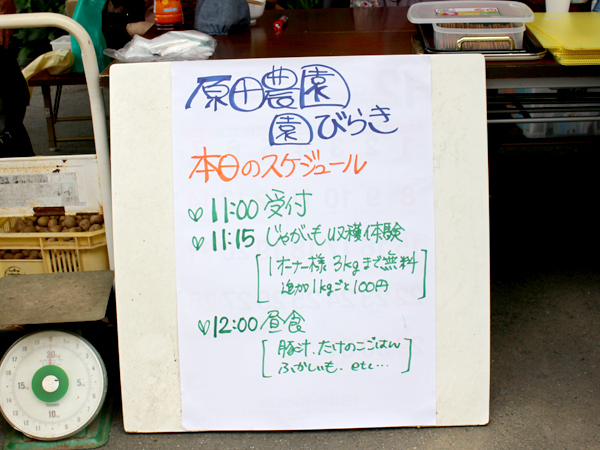 原田農園
園びらき
本日のスケジュール
11:00 受付
11:15 じゃがいも収穫体験
1オーナー様 3kgまで無料
追加1kgごと100円
12:00 昼食
豚汁、たけのこごはん
ふかしいも、etc…
20
15
5
10